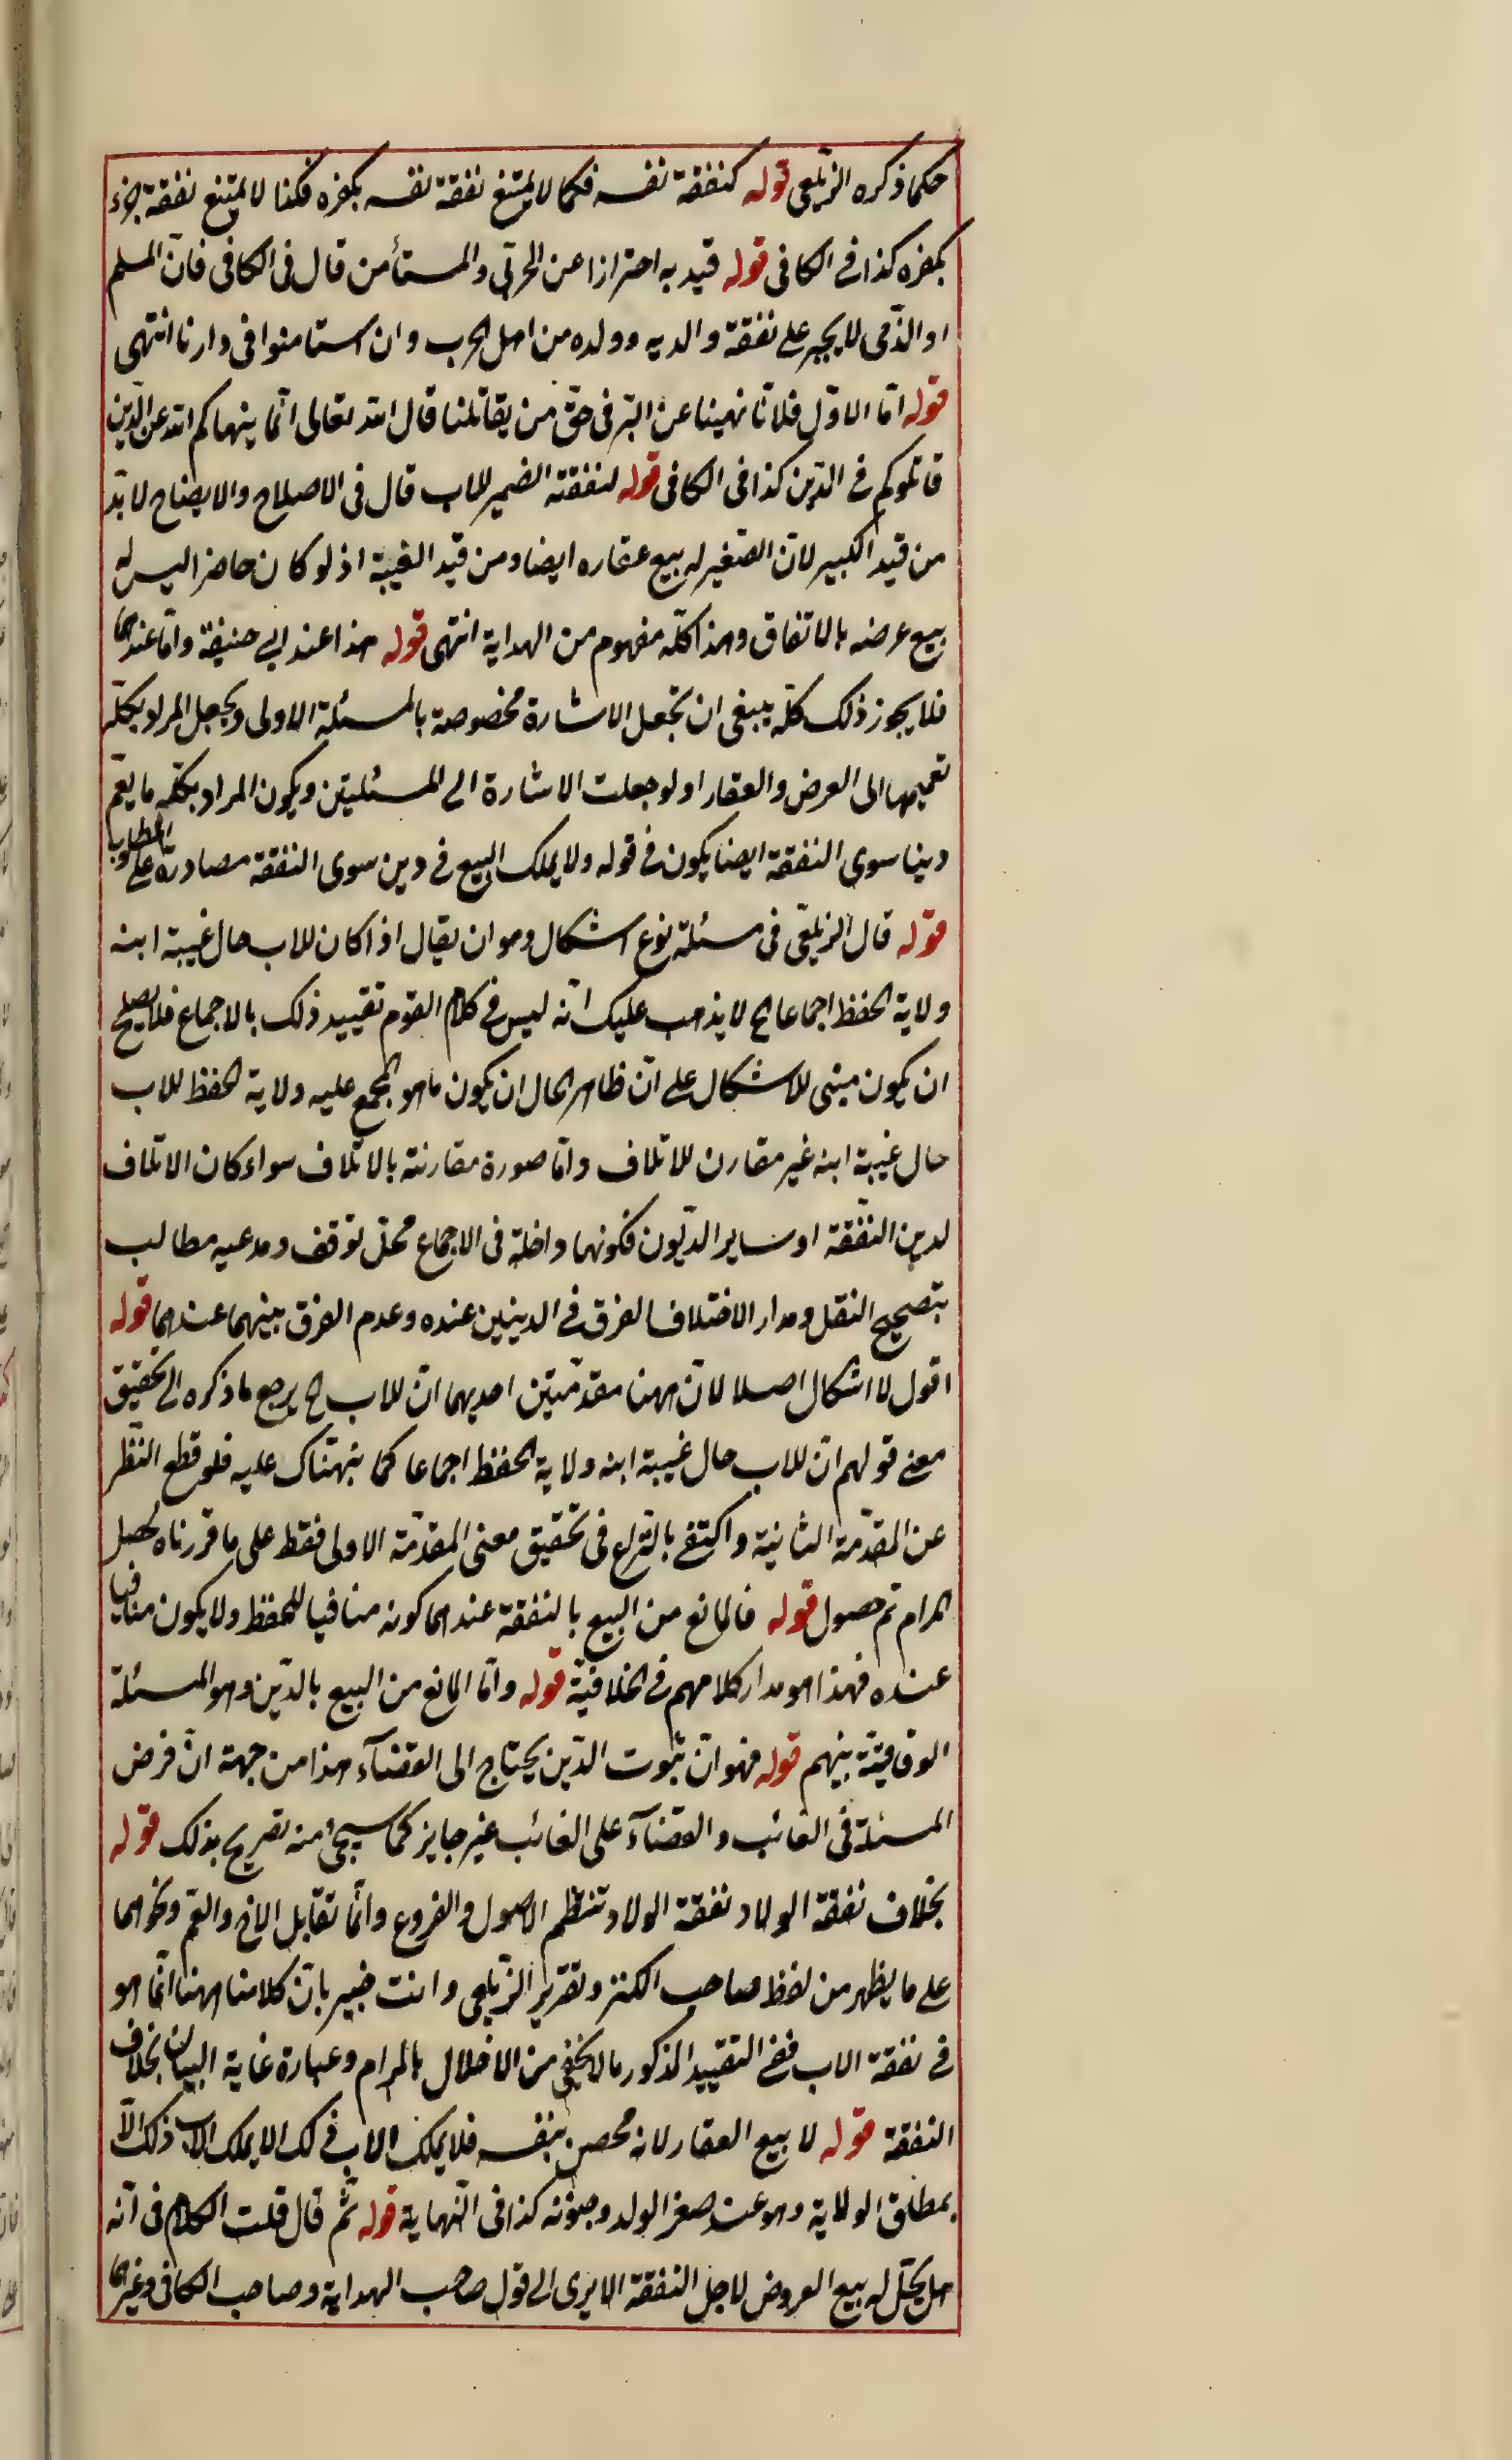 حكما ذكره الزيلعى قوله كنفقة نفسه فكما لا يمتنع نفقة نفسه بكفره فكذا لا يمتنع نفقة جزء
بكفره كذا فى الكافى قوله قيد به احترازا عن الحربى والمستأمن قال فى الكافى فان المسلم
او الذمى لا يجبر على نفقة والديه وولده من اهل الحرب وان استامنوا فى دارنا انتهى
قوله اما الاول فلانا نهينا عن البر فى حق من يقاتلنا قال الله تعالى انما ينهاكم الله عن الذين
قاتلوكم فى الدين كذا فى الكافى قوله لنفقته الضمير للاب قال فى الاصلاح والايضاح لا بد
من قيد الكبير لان الصغير له بيع عقاره ايضا ومن قيد الغيبة اذ لو كان حاضرا ليس له
بيع عرضه بالاتفاق وهذا كله مفهوم من الهداية انتهى قوله هذا عند ابى حنيفة واما عندهما
فلا يجوز ذلك كله ينبغى ان تجعل الاشارة مخصوصة بالمسئلة الاولى ويجعل المراد بكله
تعميمها الى العرض والعقار اولو جعلت الاشارة الى المسئلتين ويكون المراد بكله ما يعم
دينا سوى النفقة ايضا يكون فى قوله ولا يملك البيع فى دين سوى النفقة مصادرة على المطلوب
قوله قال الزيلعى فى مسئلة نوع اشكال وهو ان يقال اذا كان للاب حال غيبة ابنه
ولاية الحفظ اجماعا الخ لا يذهب عليك انه ليس فى كلام القوم تقييد ذلك بالاجماع فلا يصلح
ان يكون مبنى للاشكال على ان ظاهر الحال ان يكون ما هو المجمع عليه ولاية الحفظ للاب
حال غيبة ابنه غير مقارن للاتلاف واما صورة مقارنته بالاتلاف سواء كان الاتلاف
لدين النفقة او ساير الديون فكونها داخلة فى الاجماع محل توقف ومدعيه مطالب
بتصحيح النقل ومدار الاختلاف الفرق فى الدينين عنده وعدم الفرق بينهما عندهما قوله
اقول لا اشكال اصلا لان ههنا مقدمتين احديهما ان للاب الخ يرجع ما ذكره الى تحقيق
معنى قولهم ان للاب حال غيبة ابنه ولاية الحفظ اجماعا كما نبهناك عليه فلو قطع النظر
عن المقدمة الثانية واكتفى بالتزام فى تحقيق معنى المقدمة الاولى فقط على ما قررناه لحصل
المرام تم حصول قوله فالمانع من البيع بالنفقة عندهما كونه منافيا للحفظ ولا يكون منافيا
عنده فهذا هو مدار كلامهم فى الخلافية قوله واما المانع من البيع بالدين وهو المسئلة
الوفاقية بينهم قوله فهو ان ثبوت الدين يحتاج الى القضآء هذا من جهة ان فرض
المسئلة فى الغائب والقضآء على الغائب غير جايز كما سيجئ منه تصريح بذلك قوله
بخلاف نفقة الولاد نفقة الولاد تنتظم الاصول والفروع وانما تقابل الاخ والعم ونحوهما
على ما يظهر من لفظ صاحب الكنز وتقرير الزيلعى وانت خبير بان كلامنا ههنا انما هو
فى نفقة الاب ففى التقييد المذكور ما لا يخفى من الاخلال بالمرام وعبارة غاية البيان بخلاف
النفقة قوله لا بيع العقار لانه محصن بنفسه فلا يملك الاب ذلك الا
بمطلق الولاية وهو عند صغر الولد وجنونه كذا فى النهاية قوله ثم قال قلت الكلام فى انه
هل يحل له بيع العروض لاجل النفقة الا يرى الى قول صاحب الهداية وصاحب الكافى وغيرهما